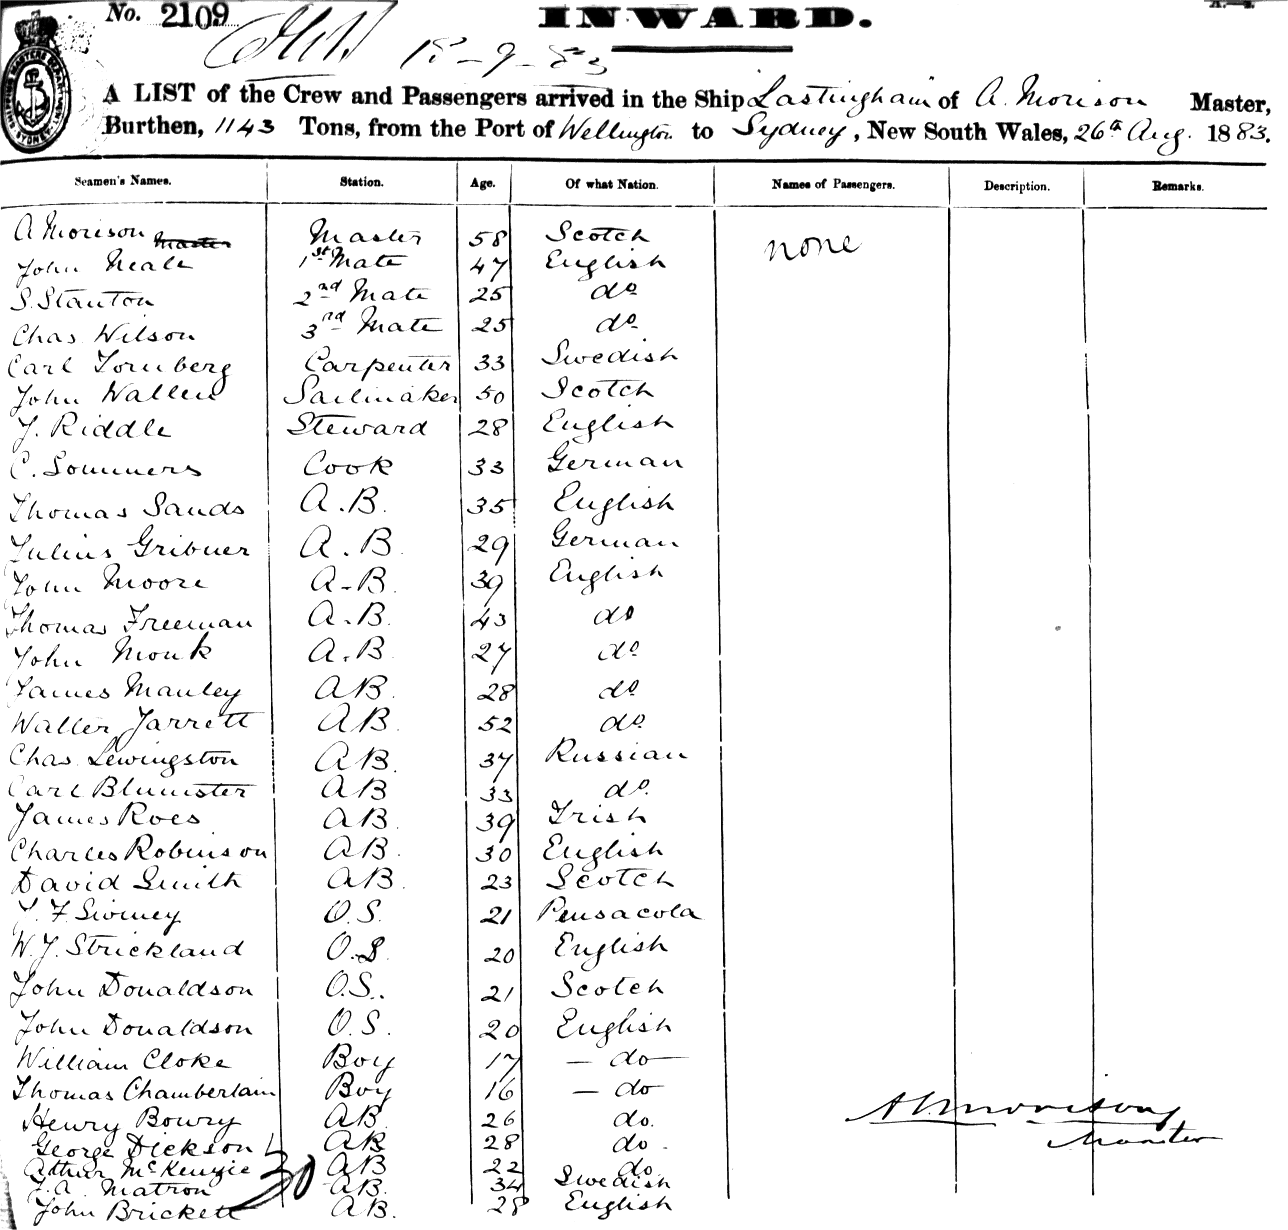 No. 2109 INWARD.
18-9-83
A LIST of the Crew and Passengers arrived in the Ship Lastingham of A. Morison Master,
Burthen, 1143 Tons, from the Port of Wellington to Sydney, New South Wales, 26th Aug. 1883.
Seamen's Names. Station. Age. Of what Nation. Names of Passengers. Description. Remarks.
A Morison Master Master 58 Scotch none
John Neale 1st Mate 47 English
S. Stanton 2nd Mate 25 do
Chas Wilson 3rd Mate 25 do
Carl Tornberg Carpenter 33 Swedish
John Wallen Sailmaker 50 Scotch
J. Riddle Steward 28 English
C. Sommers Cook 33 German
Thomas Sands A.B. 35 English
Julius Gribner A.B. 29 German
John Moore A.B. 39 English
Thomas Freeman A.B. 43 do
John Monk A.B. 27 do
James Manley AB. 28 do
Walter Jarrett AB. 52 do
Chas. Lewingston AB. 37 Russian
Carl Blumster AB 33 do.
James Roes AB. 39 Irish
Charles Robinson AB. 30 English
David Smith AB. 23 Scotch
O.S. 21 Pensacola
W.J. Strickland O.S. 20 English
John Donaldson O.S. 21 Scotch
John Donaldson O.S. 20 English
William Cloke Boy 17 - do -
Thomas Chamberlain Boy 16 - do
Henry Bowry AB. 26 do.
George Dickson AB 28 do.
Arthur McKenzie AB 22 do.
A. Matron AB. 34 Swedish
John Brickett AB. 28 English
30
A Morison
Master